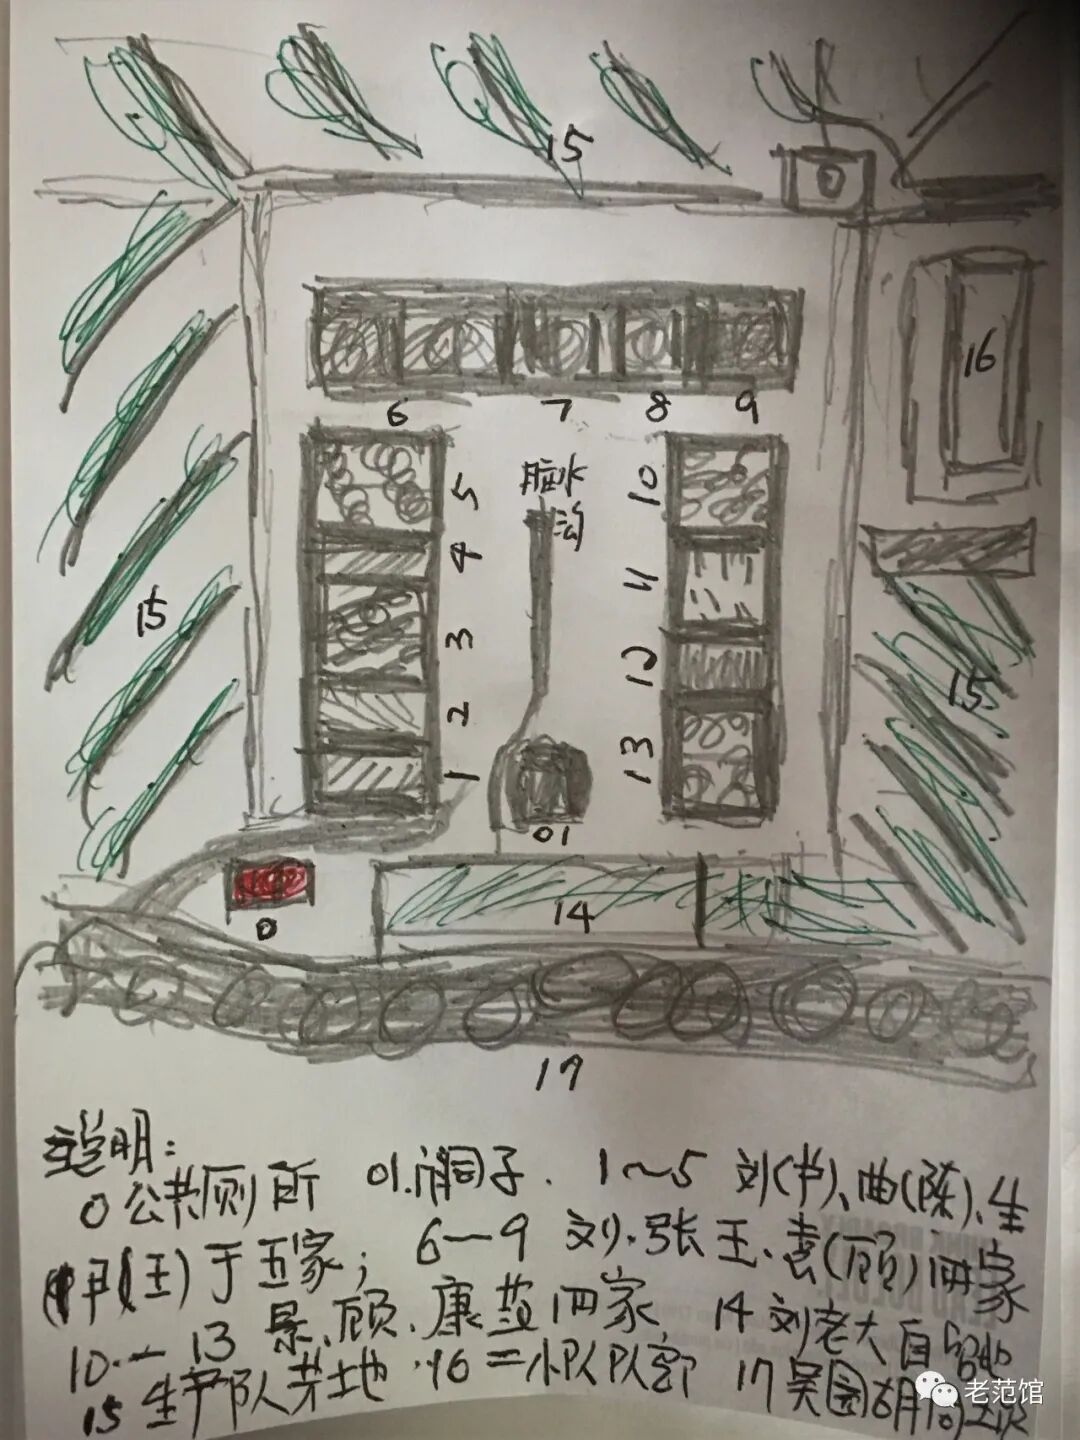 15
0
16
6 7 8 9
脏水
沟
5
4
3
2
1
10
11
12
13
15
15
01
0
14
17
说明:
0 公共厕所 01. 洞子. 1~5 刘(芦)、曲(陈)、生
尹(王)于五家; 6—9 刘.张王、袁(顾)四家
10.—13 景、顾.康 四家, 14 刘老大自留地
15 生产队菜地.16 二小队队部 17 吴园胡同
老范馆